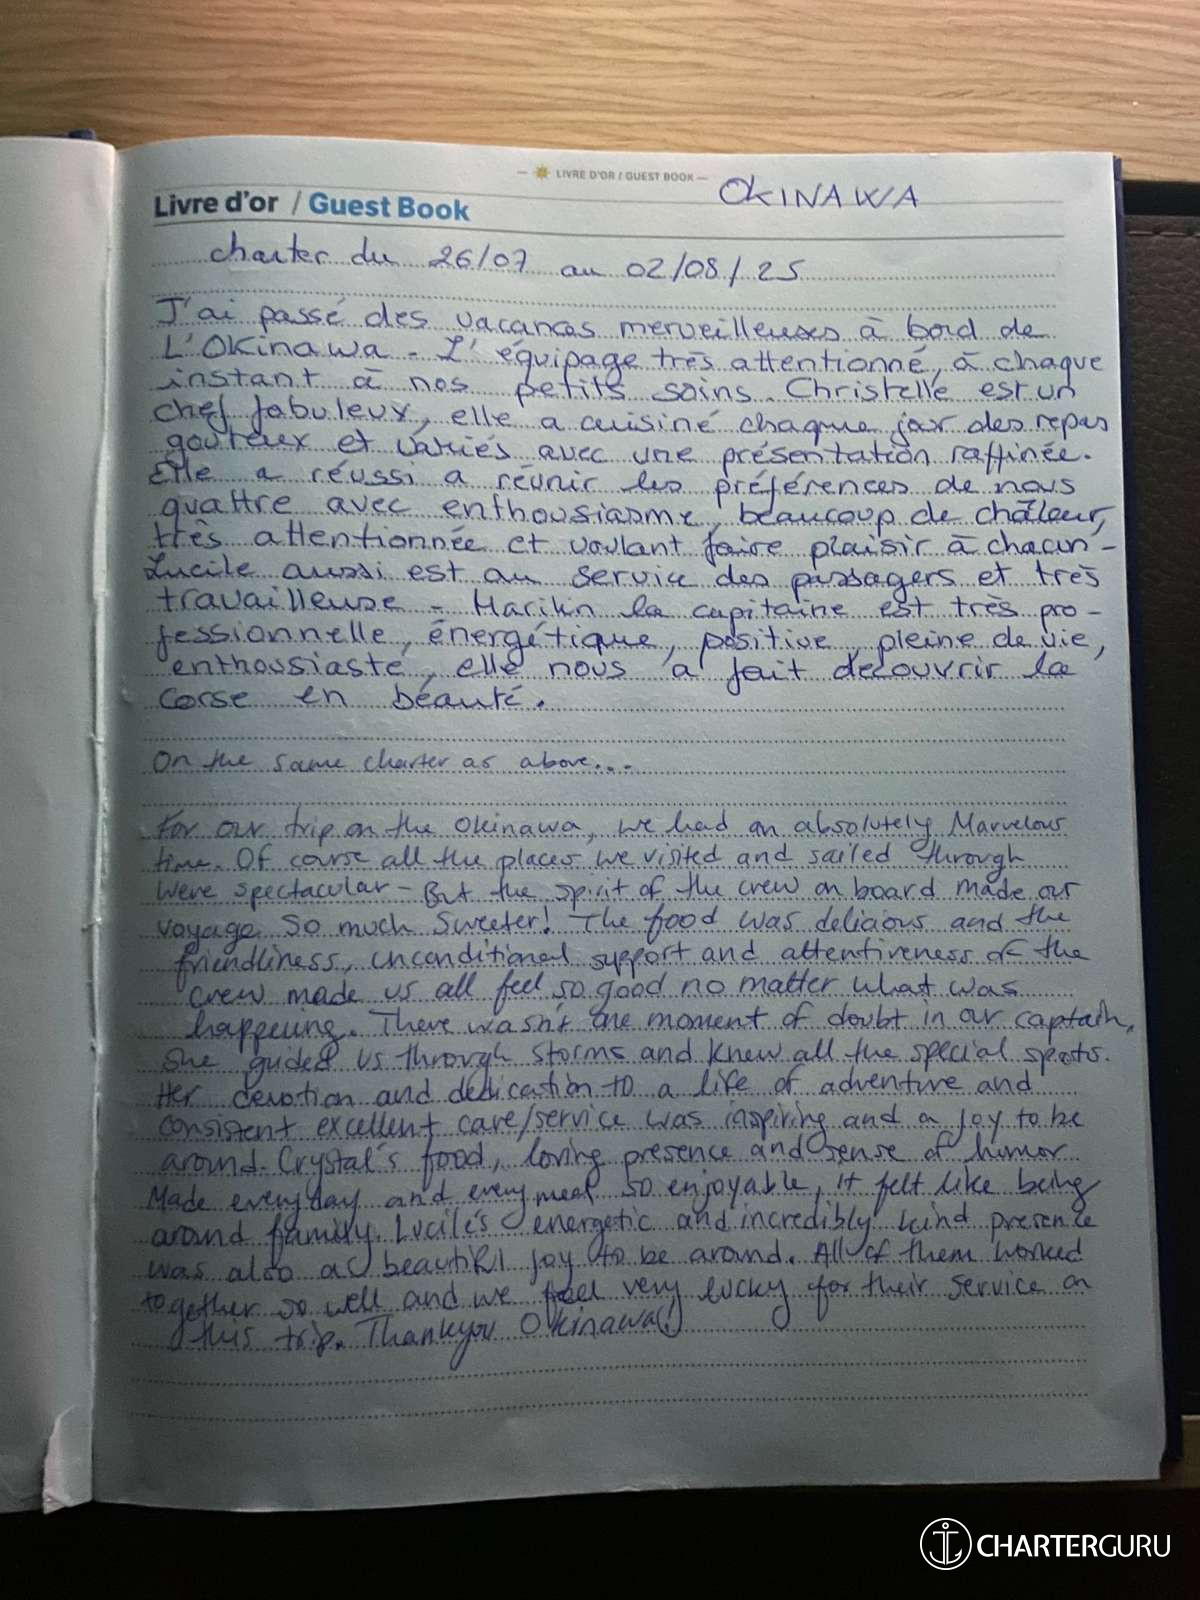 LIVRE D'OR / GUEST BOOK
OKINAWA
Livre d'or / Guest Book
charter du 26/07 au 02/08/25
J'ai passé des vacances merveilleuses à bord de
L'OKINAWA - L'équipage très attentionné, à chaque
instant à nos petits soins. Christelle est un
chef fabuleux, elle a cuisiné chaque jour des repas
gouteux et variés avec une présentation raffinée.
Elle a réussi a réunir les préférences de nous
quattre avec enthousiasme, beaucoup de chaleur,
très attentionnée et voulant faire plaisir à chacun -
Lucile aussi est au service des passagers et très
travailleuse - Marilin la capitaine est très pro-
fessionnelle, énergétique, positive, pleine de vie,
enthousiaste, elle nous a fait decouvrir la
Corse en béauté.
On the same charter as above...
For our trip on the Okinawa, we had an absolutely Marvelous
time. Of course all the places we visited and sailed through
were spectacular - But the spirit of the crew on board made our
voyage so much sweeter! The food was delicious and the
friendliness, unconditional support and attentiveness of the
crew made us all feel so good no matter what was
happening. There wasn't one moment of doubt in our captain,
she guided us through storms and knew all the special spots.
Her devotion and dedication to a life of adventure and
consistent excellent care/service was inspiring and a joy to be
around. Crystal's food, loving presence and sense of humor
Made everyday and every meal so enjoyable, it felt like being
around family. Lucile's energetic and incredibly kind presence
was also a beautiful joy to be around. All of them worked
together so well and we feel very lucky for their service on
this trip. Thankyou Okinawa!
CHARTERGURU